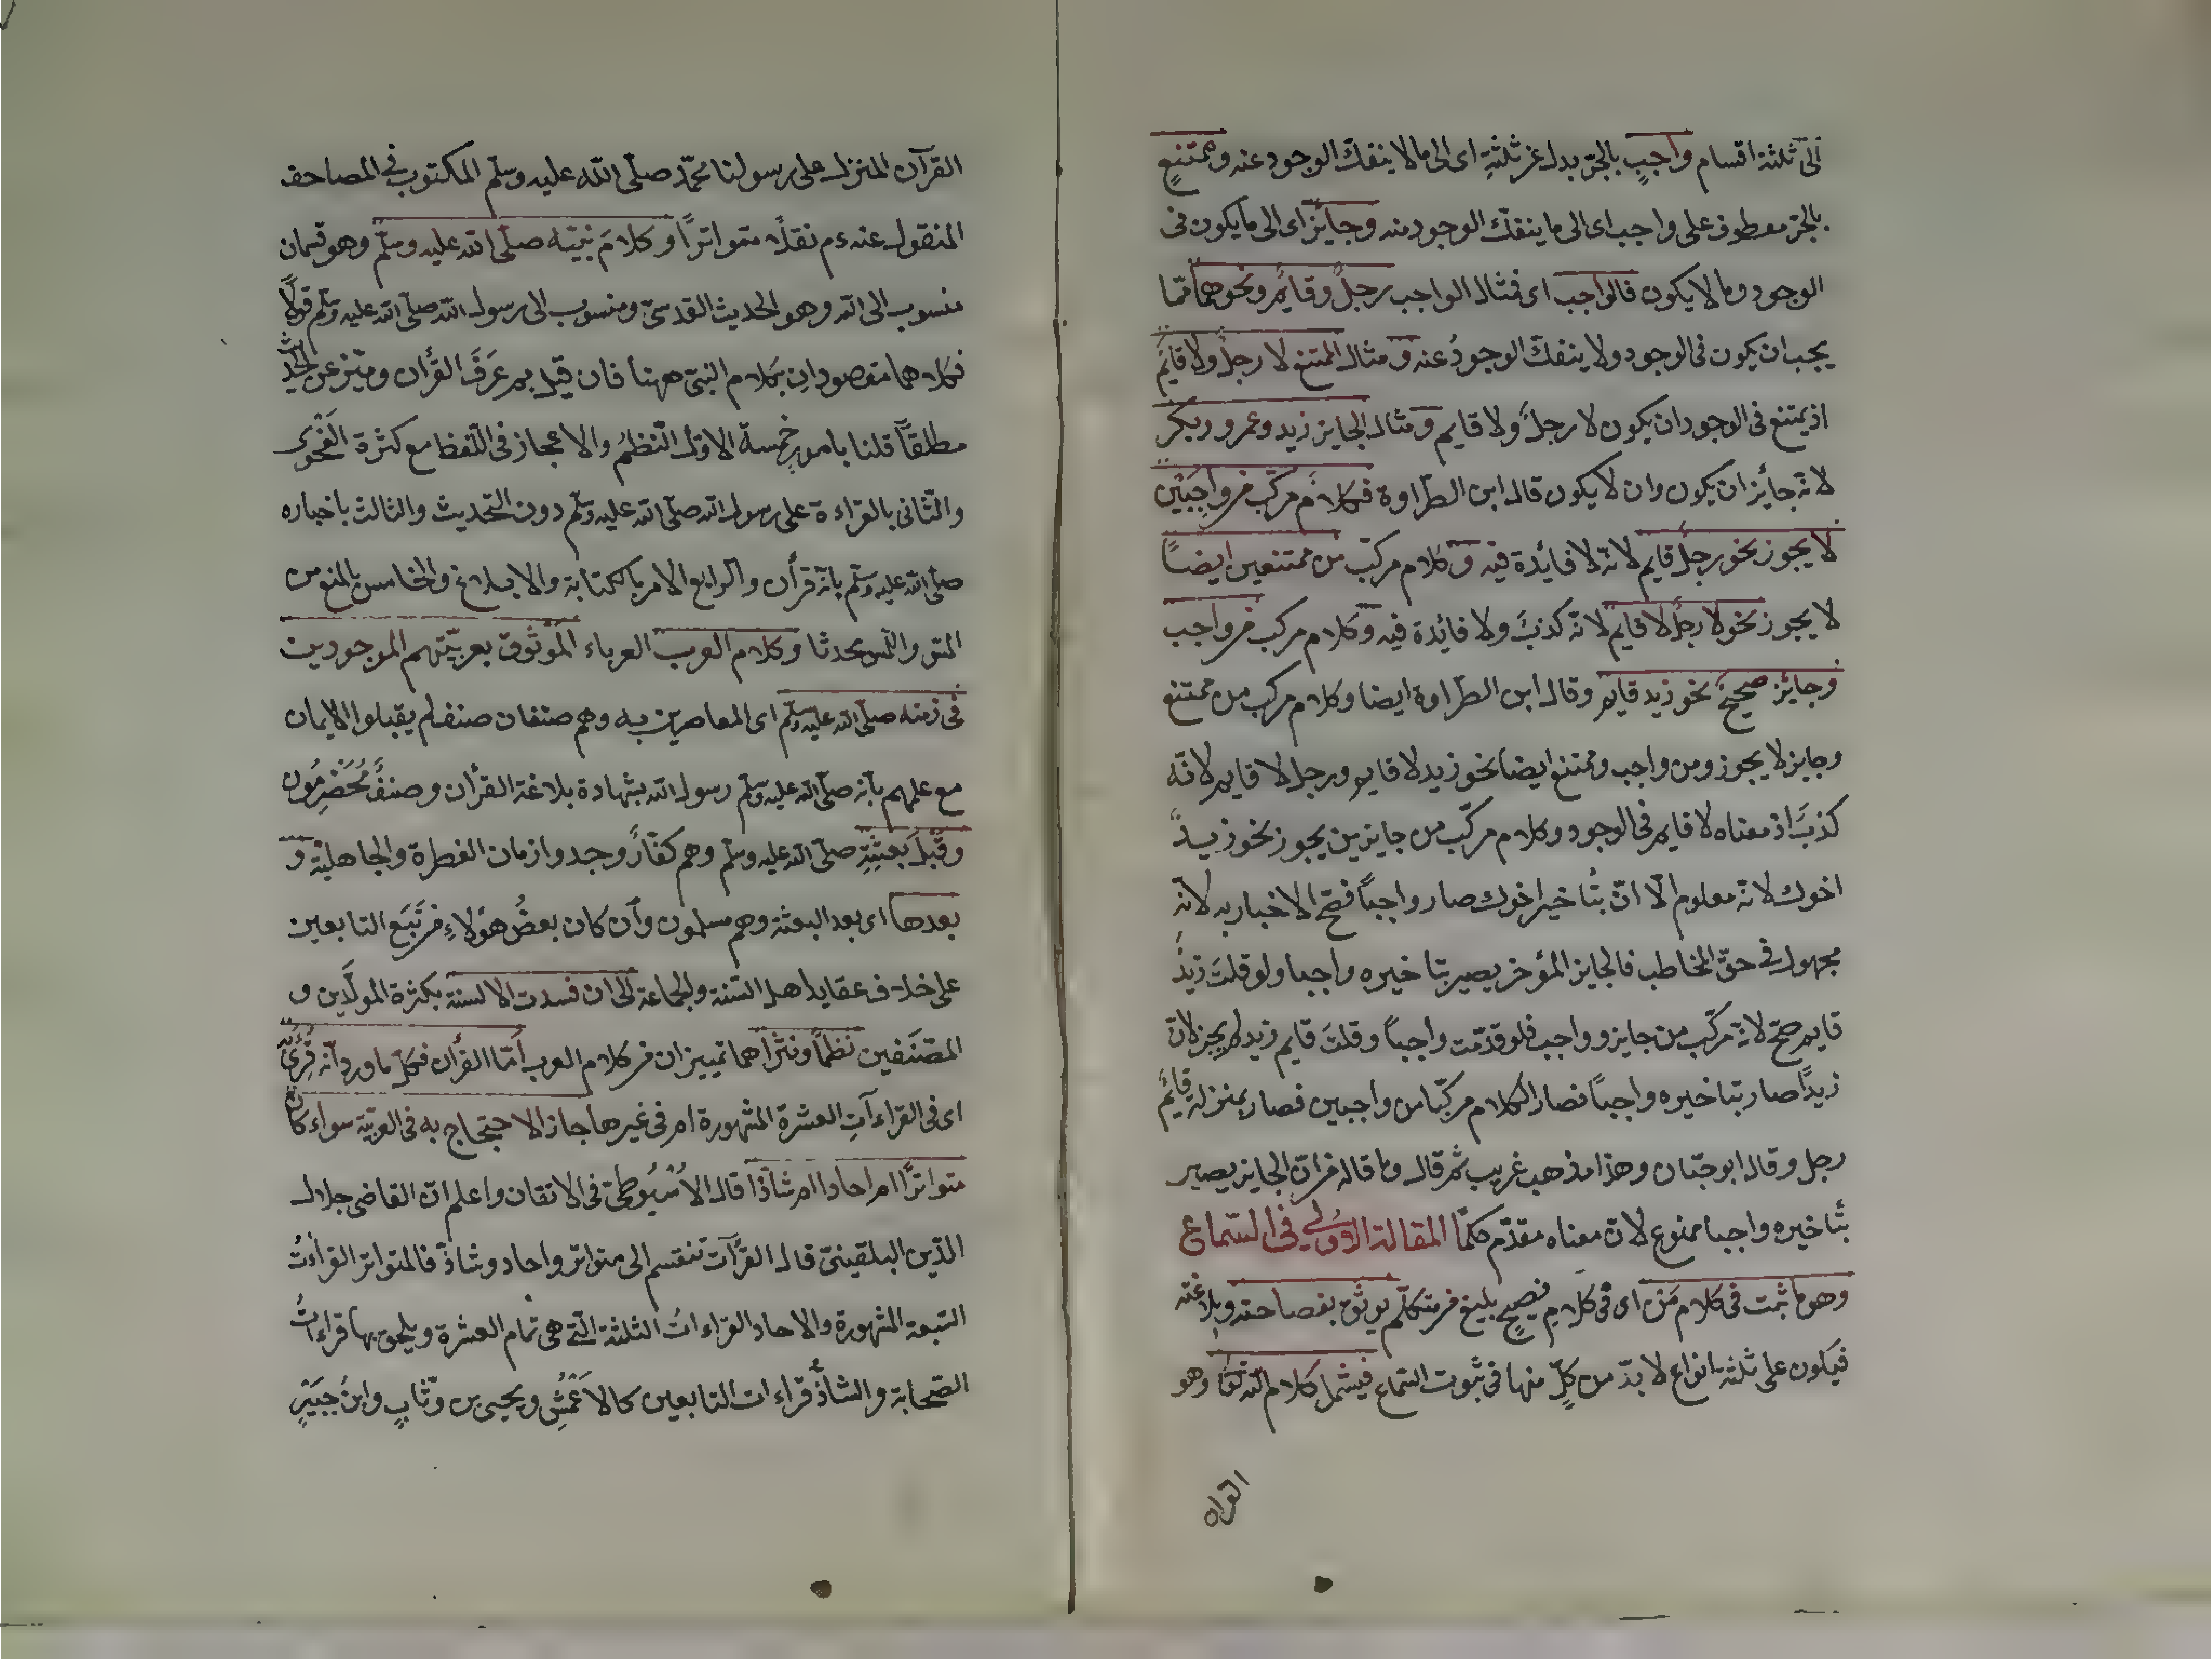 الى ثلثة اقسام واجبٍ بالجرّ بدل عن ثلثةِ اى الى ما لا ينفكّ الوجود عنه وممتنعٍ
بالجرّ معطوف على واجب اى الى ما ينفكّ الوجود منه وجايز اى الى ما يكون فى
الوجود وما لا يكون فالواجب اى فمثال الواجب رجلٌ وقايمٌ ونحوهما ممّا
يجب ان يكون فى الوجود ولا ينفكّ الوجودُ عنه و مثال الممتنع لا رجلٌ ولا قايمٌ
اذ يمتنع فى الوجود ان يكون لا رجلٌ ولا قايم و مثال الجايز زيد وعمرو وبكر
لانّه جائز ان يكون وان لا يكون قال ابن الطّراوة فكلامٌ مركّب من واجبَيْن
لا يجوز نحو رجلٌ قايم لانّه لا فائدة فيه و كلام مركّب من ممتنعين ايضًا
لا يجوز نحو لا رجلٌ لا قايم لانّه كذبٌ ولا فائدة فيه وكلام مركب من واجب
وجائز صحيحٌ نحو زيد قايم وقال ابن الطّراوة ايضا وكلام مركب من ممتنع
وجايز لا يجوز ومن واجب وممتنع ايضا نحو زيد لا قايم ورجل لا قايم لانّه
كذبٌ اذ معناه لا قايم فى الوجود وكلام مركّب من جايزين يجوز نحو زيدٌ
اخوك لانّه معلوم الّا انّ بتُاخير اخوك صار واجبًا فصّح الاخبار به لانّه
مجهول فى حقّ المخاطب فالجايز المؤخر يصير بتاخيره واجبا ولو قلتَ زيدٌ
قايم صحّ لانّه مركّب من جايز وواجب فلو قدّمت واجباً وقلتَ قايم زيد لم يجز لانّ
زيدًا صار بتاخيره واجباً فصار الكلام مركّبا من واجبين فصار بمنزلة قائم
رجل وقال ابو حيّان وهذا مذهب غريب ثمّ قال وما قاله من انّ الجايز يصير
بتُاخيره واجبا ممنوع لانّ معناه مقدّم حكمًا المقالة الاولى فى السّماع
وهو ما ثبت فى كلام مَن اى فى كلامِ فصيحٍ بليغ من متكلّم يوثق بفصاحته وبلاغته
فيكون على ثلثة انواع لا بدّ من كلّ منها فى ثبوت السّماع فيشمل كلام الله تعالى وهو
القران
القرآن المنزل على رسولنا محمّد صلّى الله عليه وسلّم المكتوب فى المصاحف
المنقول عنه ءم نقلاً متواتراً وكلامَ نبيّه صلّى الله عليه وسلّم وهو قسمان
منسوب الى الله وهو الحديث القدسىّ ومنسوب الى رسول الله صلّى الله عليه وسلّم قولًا
فكلاهما مقصودانِ بكلام النبىّ ههنا فان قيل بم عَرَفَ القرأن وميّز عن الحديث
مطلقاً قلنا بامورٍ خمسة الاوّل النّظمُ والاعجاز فى اللّفظ مع كثرة الفحوى
والثّانى بالقراءة على رسول الله صلّى الله عليه وسلّم دون التّحديث والثالث باخباره
صلّى الله عليه وسلّم بانّه قرأن والرابع الامر بالكتابة والابلاغ والخامس بالمنع من
المسّ محدثا وكلام العرب العرباء الموثوق بعربيّتهم الموجودين
فى زمنه صلّى الله عليه وسلّم اى المعاصرين به وهم صنفان صنف لم يقبلوا الايمان
مع علمهم بانّه صلّى الله عليه وسلّم رسول الله بشهادة بلاغة القرأن وصنفٌ مُخَضْرِمُون
وقَبْلَ بعثتِه صلّى الله عليه وسلّم وهم كفّارٌ وجدوا زمان الفطرة والجاهليّة و
بعدها اى بعد البعثة وهم مسلمون وان كان بعضُ هؤلاءِ من تَبَع التابعين
على خلاف عقايد اهل السّنة والجماعة الى ان فسدت الالسنة بكثرة المولَّدين و
المصنّفين نظمًا ونثرًا هما تمييزان من كلام العرب امّا القرأن فكلّ ما ورد انّه قُرِئَ به
اى فى القراءآتِ العشرة المشهورة ام فى غيرها جاز الاحتجاج به فى العربيّة سواء كان
متواترًا ام احادا ام شاذّا قال الاُسْيُوطىّ فى الاتقان واعلم انّ القاضى جلال
الدّين البلقينىّ قال القرُآت تنقسم الى متواتر واحاد وشاذّ فالمتواتر القراءتُ
السّبعة المشهورة والاحاد القراءاتُ الثلثة الّتى هى تمام العشرة ويلحق بها قراءاتُ
الصّحابة والشاذُّ قراءات التابعين كالاَعْمَشِ ويحيى بن وثّابٍ وابن جبَيْرٍ